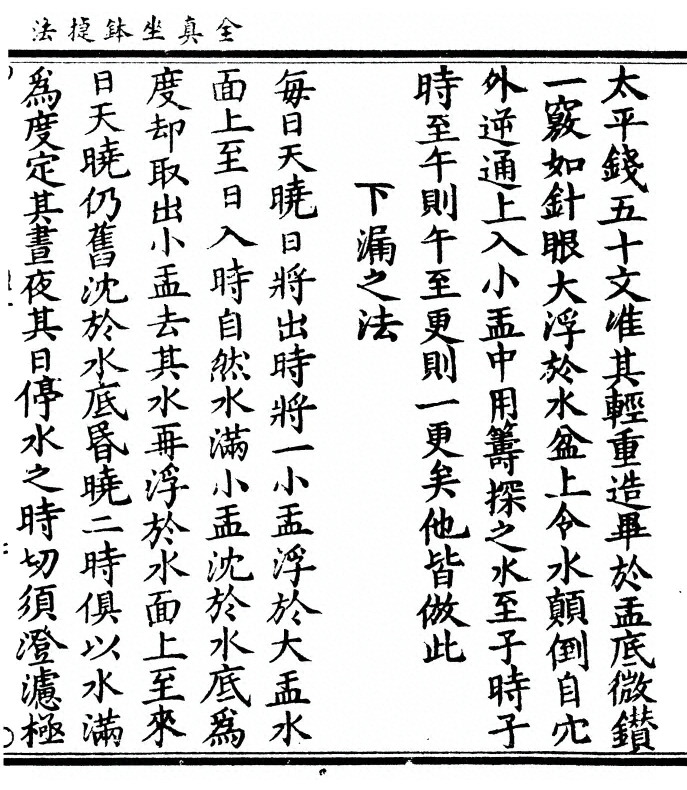 全真坐鉢捷法
太平錢五十文准其輕重造畢於盂底微鑚
一竅如針眼大浮於水盆上令水顛倒自穴
外逆通上入小盂中用籌探之水至子時子
時至午則午至更則一更矣他皆倣此
下漏之法
每日天曉日將出時將一小盂浮於大盂水
面上至日入時自然水滿小盂沈於水底爲
度却取出小盂去其水再浮於水面上至來
日天曉仍舊沈於水底昬曉二時俱以水滿
爲度定其晝夜其日停水之時切須澄濾極